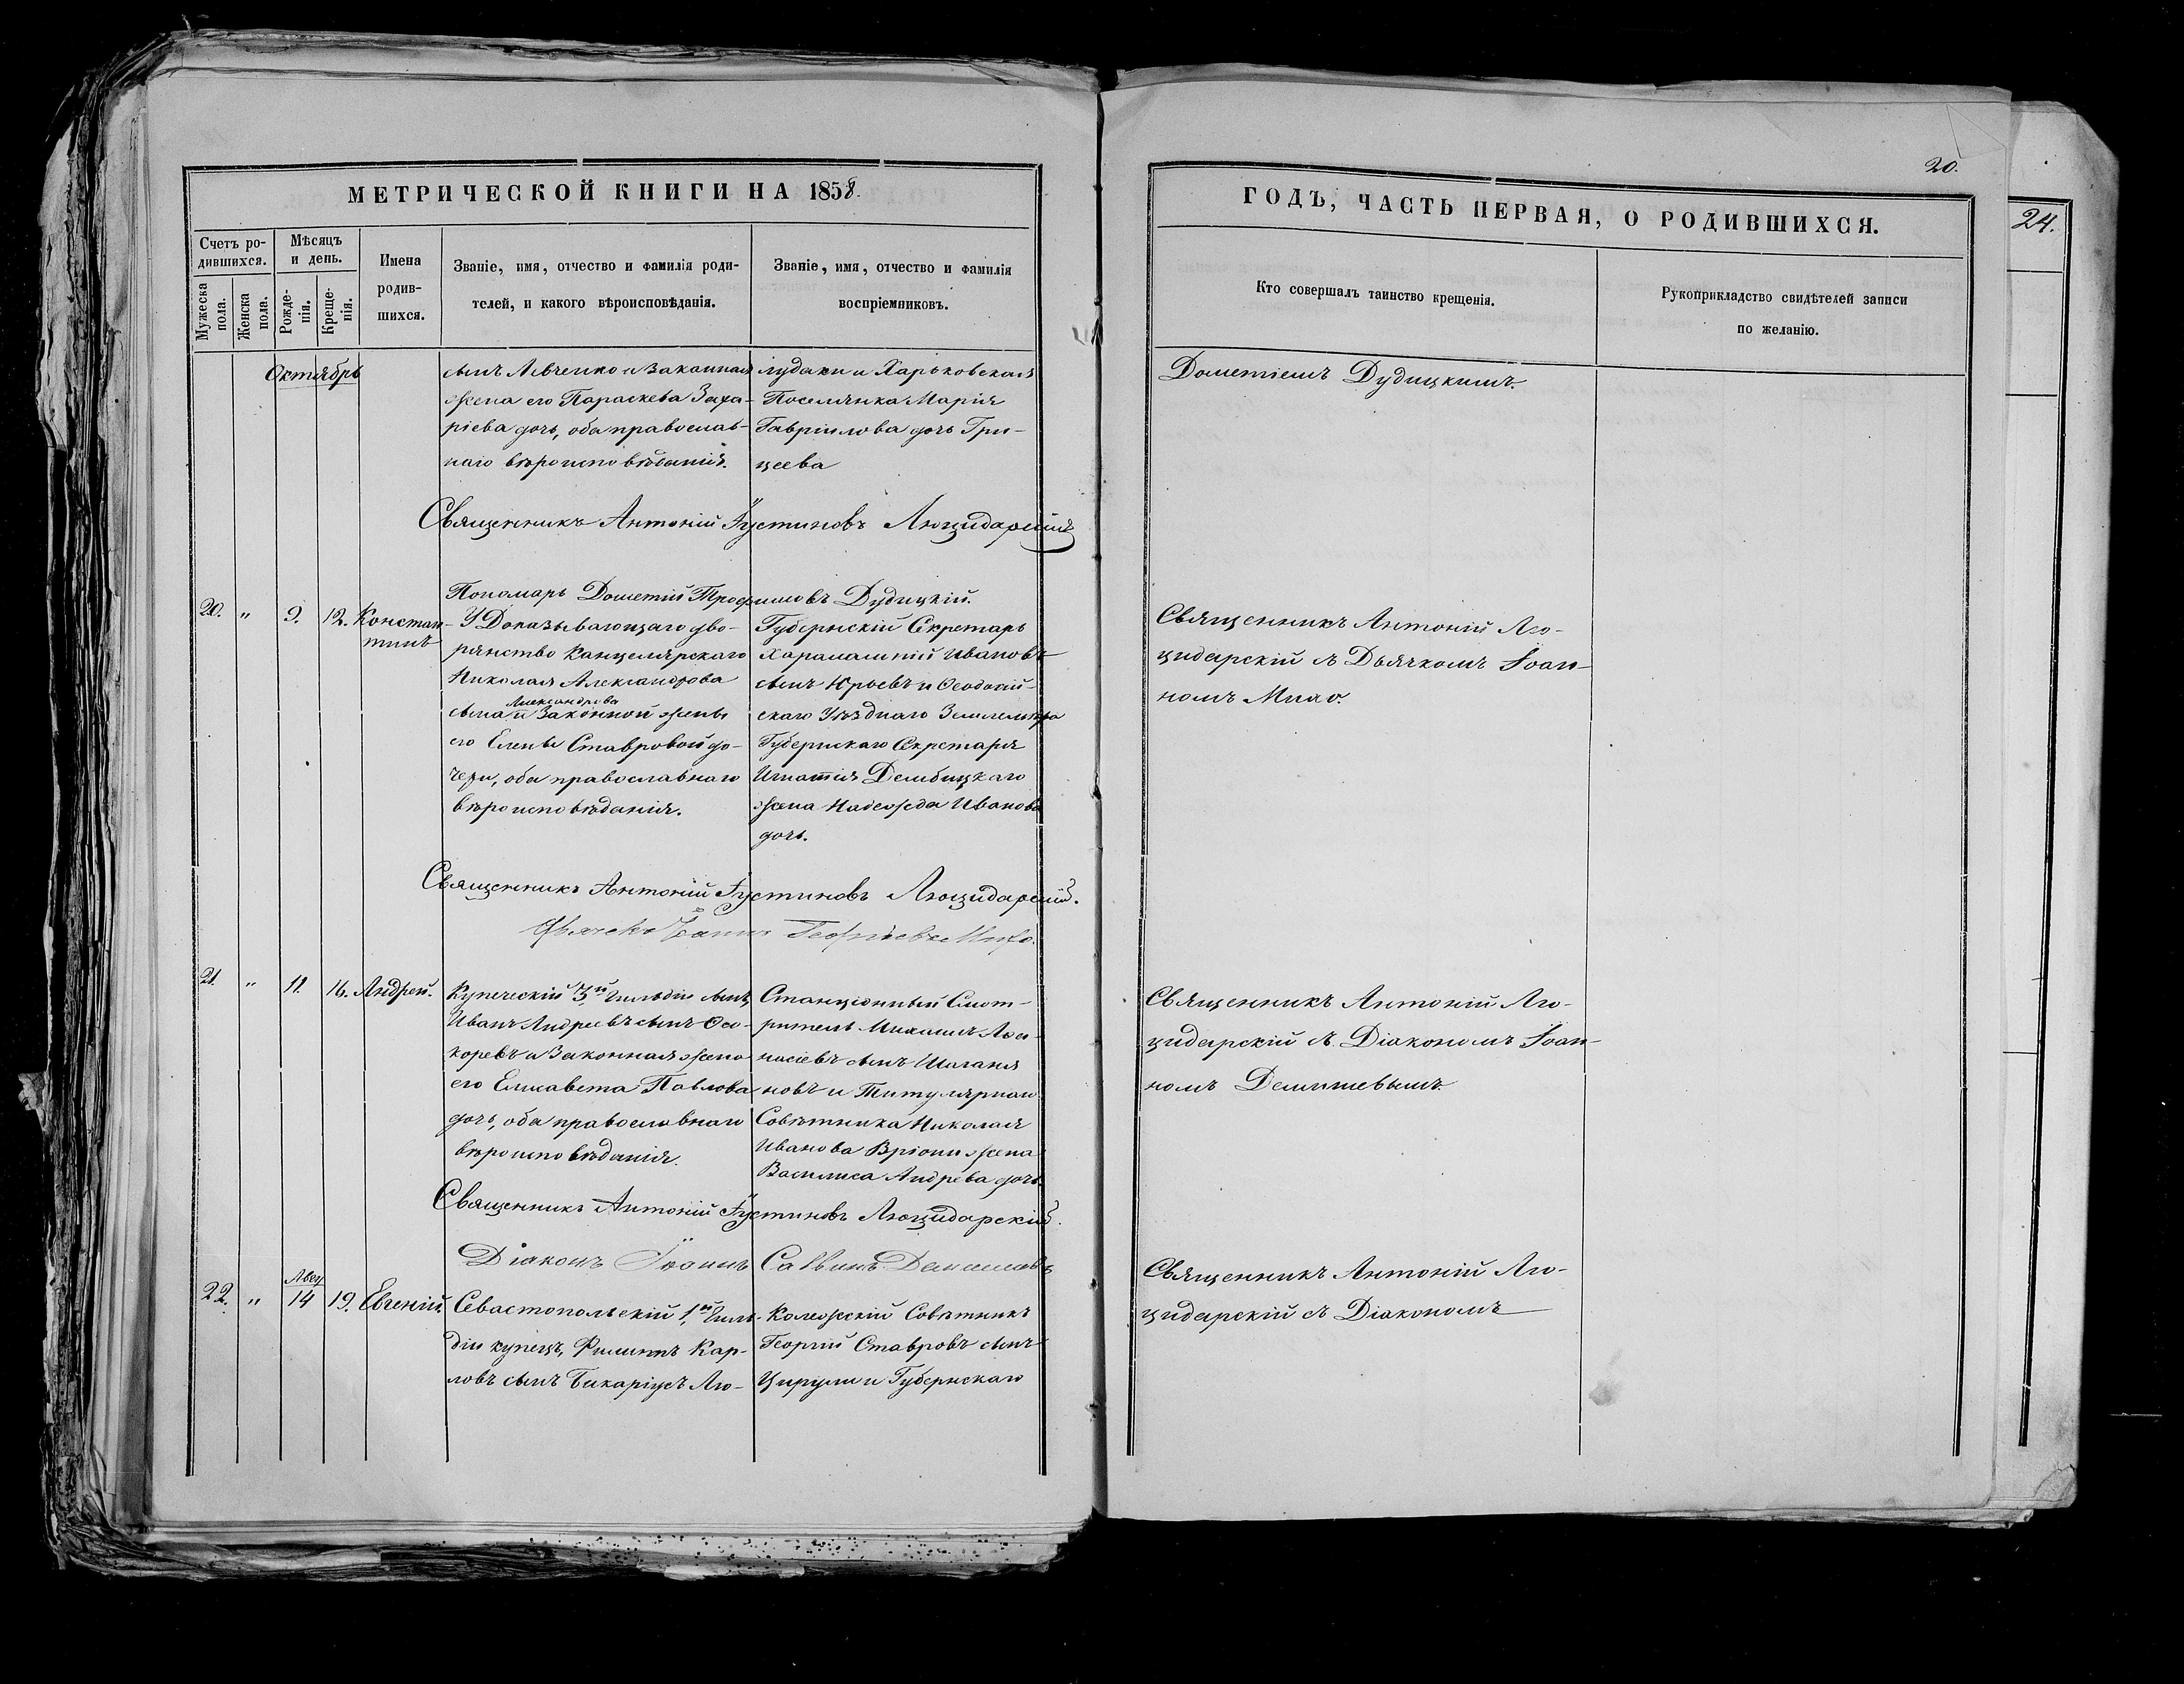 МЕТРИЧЕСКОЙ КНИГИ НА 1858.
Счетъ ро-
дившихся.
Мѣсяцъ
и день.
Мужеска
пола.
Женска
пола.
Рожде-
нія.
Креще-
нія.
Имена
родив-
шихся.
Званіе, имя, отчество и фамилія роди-
телей, и какого вѣроисповѣданія.
Званіе, имя, отчество и фамилія
воспріемниковъ.
Октябрь
сынъ Левченко и Законная
жена его Параскева Заха-
ріева дочь, оба православ-
наго вѣроисповѣданія.
и Харьковская
Поселянка Марія
Гавріилова дочь Гри-
цеева
Священникъ Антоній Іустиновъ Люцидарскій
Пономарь Дометій Трофимовъ Дудицкій.
20. " 9. 12. Констан-
тинъ
У Доказывающаго дво-
рянство Канцелярскаго
Николая Александрова
сына Александрова
и Законной жены
его Елены Ставровой до-
чери, оба православнаго
вѣроисповѣданія.
Губернскій Секретарь
Харалампій Ивановъ
сынъ и Ѳеодосій-
скаго Уѣзднаго Землемѣра
Губернскаго Секретаря
Игнатія Дембицкаго
жена Надежда Иванова
дочь.
Священникъ Антоній Іустиновъ Люцидарскій.
Дьячекъ Іоаннъ Георгіевъ
21. " 11. 16. Андрей.
Купеческій 3й Гильдіи сынъ
Иванъ Андреевъ сынъ
и Законная жена
его Елисавета Павлова
дочь, оба православнаго
вѣроисповѣданія.
Станціонный Смот-
ритель Михаилъ Аѳа-
насіевъ сынъ
новъ и Титулярнаго
Совѣтника Николая
Иванова Вріони жена
Василиса Андрева дочь.
Священникъ Антоній Іустиновъ Люцидарскій.
Діаконъ Іоаннъ Саввинъ
22. " 14 19. Евгеній.
Севастопольскій 1й Гиль-
діи купецъ, Филиппъ Кар-
ловъ сынъ Бикаріусъ Лю-
Колежскій Совѣтникъ
Георгій Ставровъ сынъ
Цирули и Губернскаго
20.
ГОДЪ, ЧАСТЬ ПЕРВАЯ, О РОДИВШИХСЯ.
Кто совершалъ таинство крещенія.
Рукоприкладство свидѣтелей записи
по желанію.
Дометіемъ Дудицкимъ.
Священникъ Антоній Лю-
цидарскій съ Дьячкомъ Іоан-
номъ
Священникъ Антоній Лю-
цидарскій съ Діакономъ Іоан-
номъ
Священникъ Антоній Лю-
цидарскій съ Діакономъ
24.